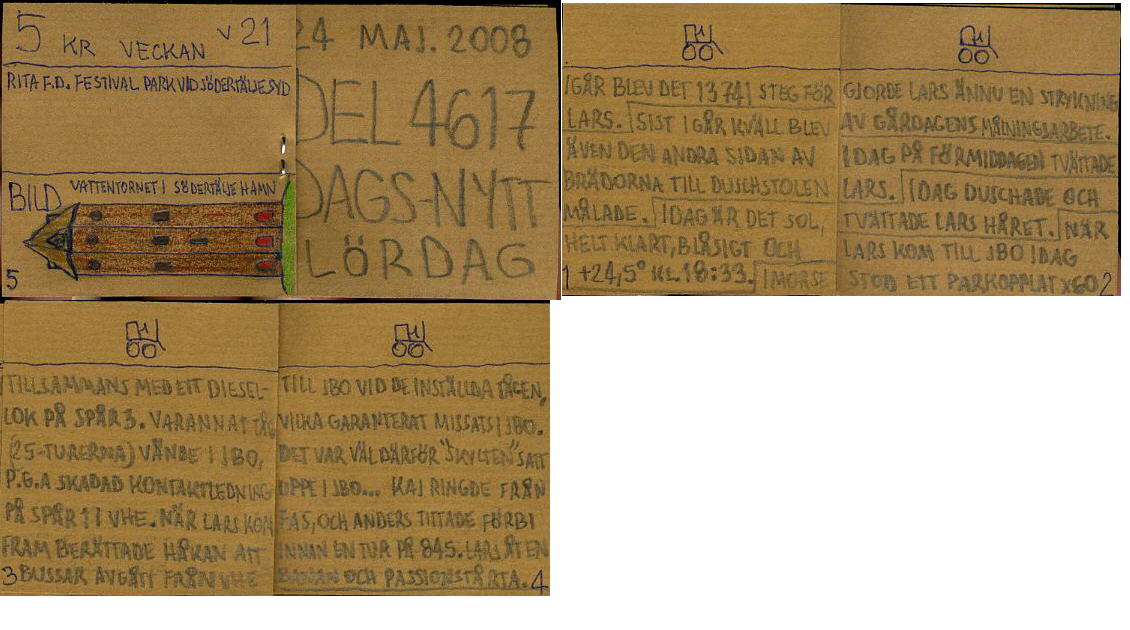 5 KR VECKAN v 21
RITA F.D. FESTIVAL PARK VID SÖDERTÄLJE SYD
BILD
VATTENTORNET I SÖDERTÄLJE HAMN
5
24 MAJ. 2008
DEL 4617
DAGS-NYTT
LÖRDAG
IGÅR BLEV DET 13741 STEG FÖR
LARS. SIST IGÅR KVÄLL BLEV
ÄVEN DEN ANDRA SIDAN AV
BRÄDORNA TILL DUSCHSTOLEN
MÅLADE. IDAG ÄR DET SOL,
HELT KLART, BLÅSIGT OCH
1 +24,5° KL. 18:33. IMORSE
GJORDE LARS ÄNNU EN STRYKNING
AV GÅRDAGENS MÅLNINGSARBETE.
IDAG PÅ FÖRMIDDAGEN TVÄTTADE
LARS. IDAG DUSCHADE OCH
TVÄTTADE LARS HÅRET. NÄR
LARS KOM TILL JBO IDAG
STOD ETT PARKOPPLAT X60 2
TILLSAMMANS MED ETT DIESEL-
LOK PÅ SPÅR 3. VARANNAT TÅG
(25-TURERNA) VÄNDE I JBO,
P.G.A SKADAD KONTAKTLEDNING
PÅ SPÅR 11 VHE. NÄR LARS KOM
FRAM BERÄTTADE HÅKAN ATT
3 BUSSAR AVGÅTT FRÅN VHE
TILL JBO VID DE INSTÄLLDA TÅGEN,
VILKA GARANTERAT MISSATS I JBO.
DET VAR VÄL DÄRFÖR "SKYLTEN" SATT
UPPE I JBO... KAJ RINGDE FRÅN
FAS, OCH ANDERS TITTADE FÖRBI
INNAN EN TUR PÅ 845. LARS ÅT EN
BANAN OCH PASSIONSTÅRTA. 4